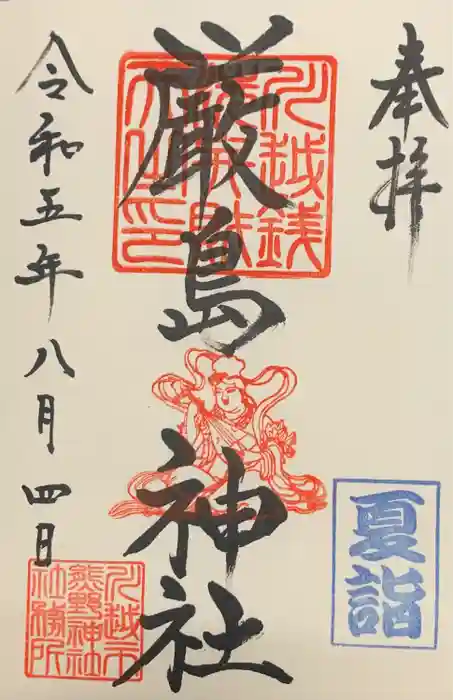 奉拝
厳島神社
令和五年八月四日
夏詣
川越市
熊野神社
社務所